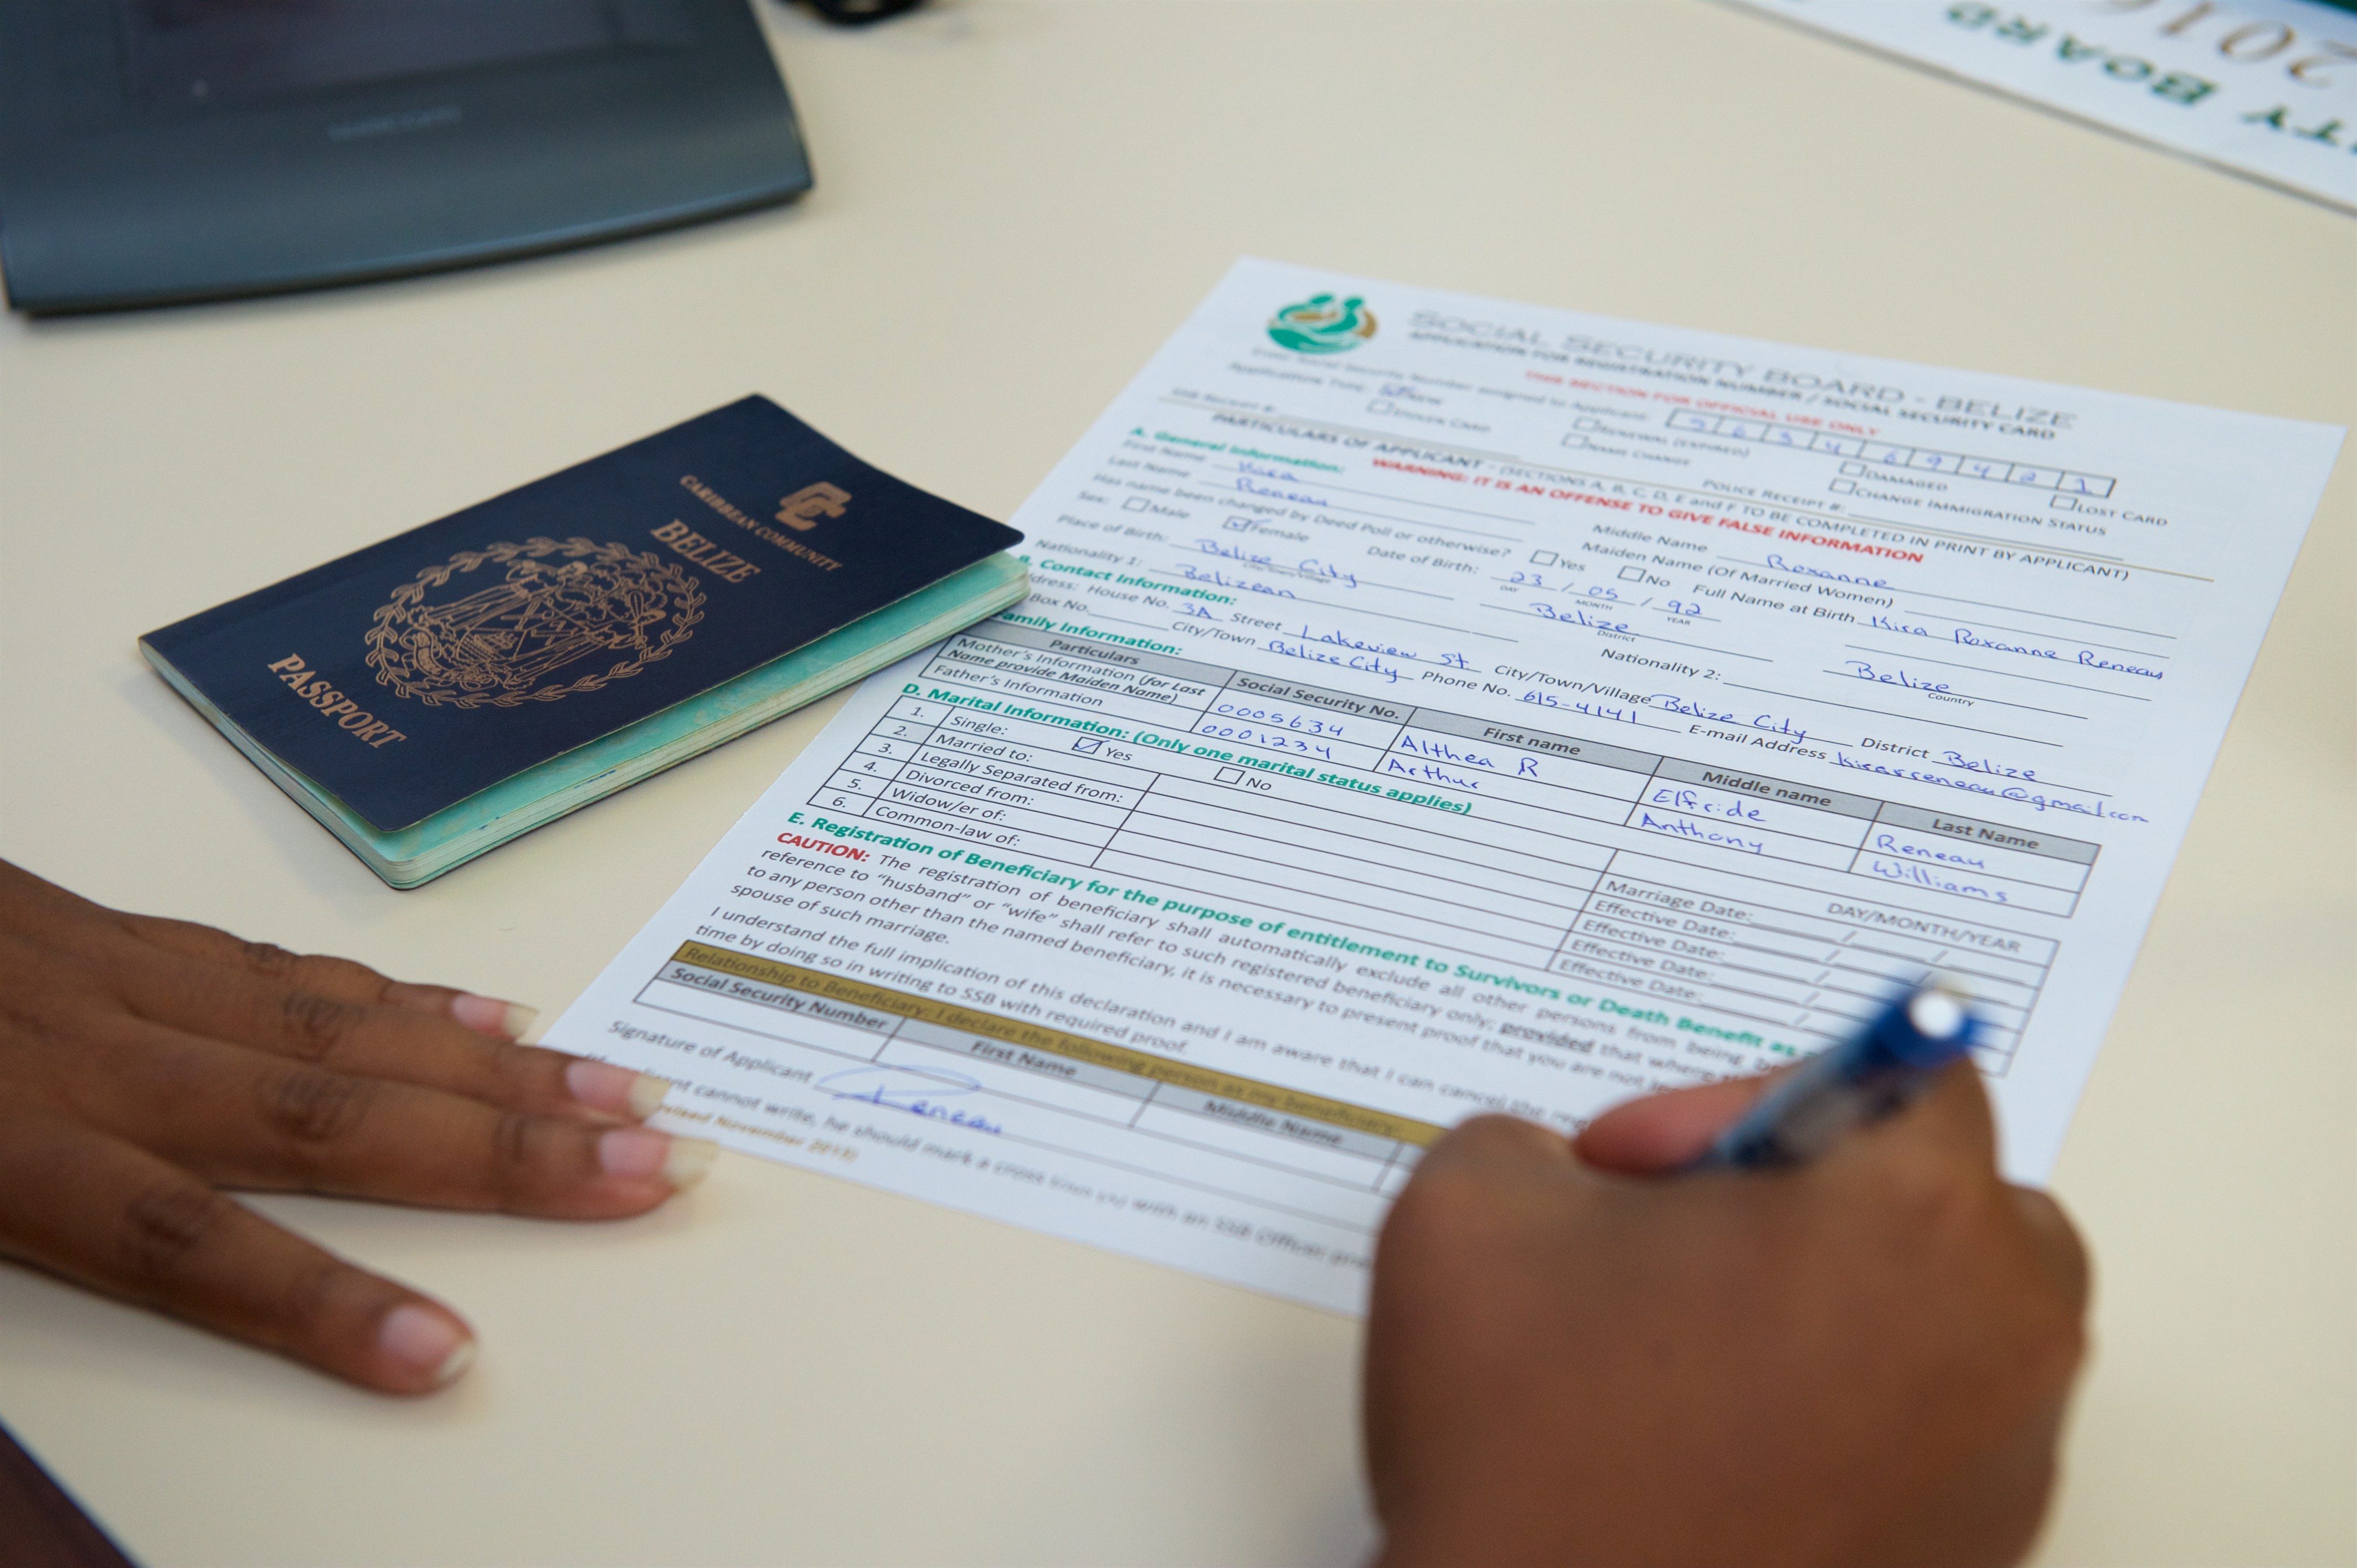 2016
TY BOARD
CARIBBEAN COMMUNITY
BELIZE
PASSPORT
SOCIAL SECURITY BOARD - BELIZE
APPLICATION FOR REGISTRATION NUMBER / SOCIAL SECURITY CARD
THIS SECTION FOR OFFICIAL USE ONLY
Social Security Number assigned to Applicant:
Application Type:
STOLEN CARD RENEWAL (EXPIRED) DAMAGED LOST CARD
NAME CHANGE CHANGE IMMIGRATION STATUS
SSB Receipt #: POLICE RECEIPT #:
PARTICULARS OF APPLICANT - (SECTIONS A, B, C, D, E and F TO BE COMPLETED IN PRINT BY APPLICANT)
A. General Information: WARNING: IT IS AN OFFENSE TO GIVE FALSE INFORMATION
First Name Kira Middle Name Roxanne
Last Name Reneau Maiden Name (Of Married Women)
Has name been changed by Deed Poll or otherwise? Yes No Full Name at Birth Kira Roxanne Reneau
Sex: Male Female Date of Birth: 23 / 05 / 92
DAY MONTH YEAR
Place of Birth: Belize City Belize Belize
City/Town/Village District Country
Nationality 1: Belizean Nationality 2:
B. Contact Information:
House No. 3A Street Lakeview St City/Town/Village Belize City District Belize
Box No. City/Town Belize City Phone No. 615-4141 E-mail Address kirarreneau@gmail.com
Family Information:
Particulars Social Security No. First name Middle name Last Name
Mother's Information (for Last Name provide Maiden Name) 0005634 Althea R Elfride Reneau
Father's Information 0001234 Arthur Anthony Williams
D. Marital Information: (Only one marital status applies)
1. Single: Yes No DAY/MONTH/YEAR
2. Married to: Marriage Date: / /
3. Legally Separated from: Effective Date: /
4. Divorced from: Effective Date: /
5. Widow/er of: Effective Date: /
6. Common-law of: Effective Date: /
E. Registration of Beneficiary for the purpose of entitlement to Survivors or Death Benefit as
CAUTION: The registration of beneficiary shall automatically exclude all other persons from being
reference to "husband" or "wife" shall refer to such registered beneficiary only; provided that where
to any person other than the named beneficiary, it is necessary to present proof that you are not
spouse of such marriage.
I understand the full implication of this declaration and I am aware that I can cancel the
time by doing so in writing to SSB with required proof.
Relationship to Beneficiary: I declare the following person as my beneficiary:
Social Security Number First Name Middle Name
Signature of Applicant Reneau
cannot write, he should mark a cross with an SSB Officer
November